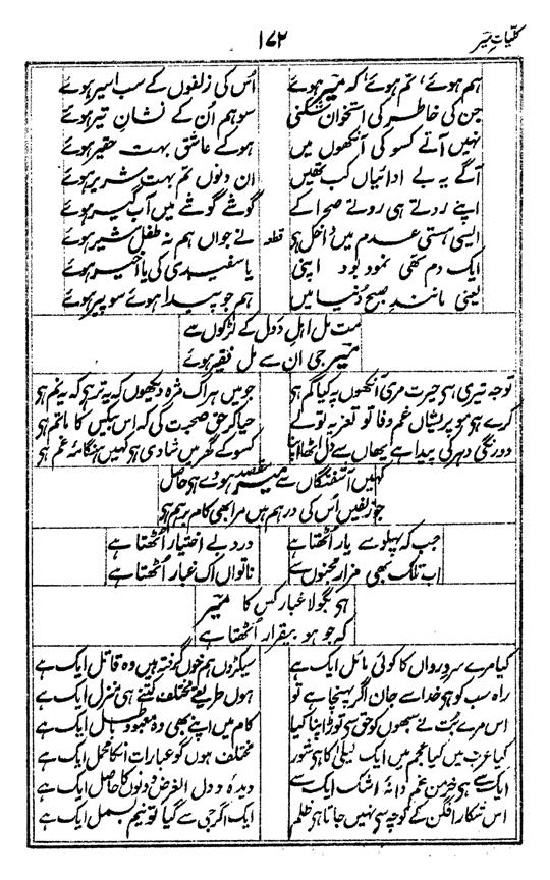 کلیاتِ میر
۱۷۲
ہم ہوئے، تم ہوئے، کہ میر ہوئے اُس کی زلفوں کے سب اسیر ہوئے
جن کی خاطر کی استخوان شکنی سو ہم اُن کے نشانِ تیر ہوئے
نہیں آتے کسو کی آنکھوں میں ہو کے عاشق بہت حقیر ہوئے
آگے یہ بے ادائیاں کب تھیں ان دنوں تم بہت شریر ہوئے
اپنے روتے ہی روتے صحرا کے گوشے گوشے میں آب گیر ہوئے
ایسی ہستی عدم میں داخل ہی قطعہ نے جواں ہم نہ طفلِ شیر ہوئے
ایک دم تھی نمود بود اپنی یا سفیدی کی یا اخیر ہوئے
یعنی مانند صبح دُنیا میں ہم جو پیدا ہوئے سو پیر ہوئے
مت مل اہلِ دوَل کے لڑکوں سے
میر جی ان سے مل فقیر ہوئے
توجہ تیری ہی حیرت مری آنکھوں پہ کیا کم ہی جو میں ہر اک مژہ دیکھوں کہ یہ تر ہی کہ یہ نم ہی
کرے ہی مو پریشاں غم وفا تو تعزیہ تو لے حیا کر حق صحبت کی کہ اس بیکس کا ماتم ہی
دورنگی دہر کی پیدا ہے یھاں سے دل اٹھا اپنا کسو کے گھر میں شادی ہی کہیں ہنگامۂ غم ہی
کہیں آشفتگاں سے میر مقصد ہووے ہی حاصل
جو زلفیں اُس کی درہم ہیں مرا بھی کام برہم ہی
جب کہ پہلو سے یار اُٹھتا ہے درد بے اختیار اُٹھتا ہے
اب تلک بھی مزارِ مجنوں سے ناتواں اک غبار اُٹھتا ہے
ہی بگولا غبار کس کا میر
کہ جو ہو بیقرار اُٹھتا ہے
کیا مرے سروِ رواں کا کوئی مائل ایک ہے سیکڑوں ہم خوں گرفتہ ہیں وہ قاتل ایک ہے
راہ سب کو ہی خدا سے جان اگر پہنچا ہے تو ہوں طریقے مختلف کتنے ہی منزل ایک ہے
اس مرے بُت نے سبھوں کو حق سی توڑ اپنا کیا کام میں اپنے بھی وہ معبودِ باطل ایک ہے
کیا عرب میں کیا عجم میں ایک لیلیٰ کا ہی شور مختلف ہوں گو عبارات اُنکا محمل ایک ہے
ایک سے ہی خرمنِ غم دانۂ اشک ایک سے دیدہ و دل الغرض دونوں کا حاصل ایک ہے
اس شکار افگن کے کوچہ سی نہیں جاتا ہی ظلم ایک اگر جی سے گیا تو نیم بسمل ایک ہے